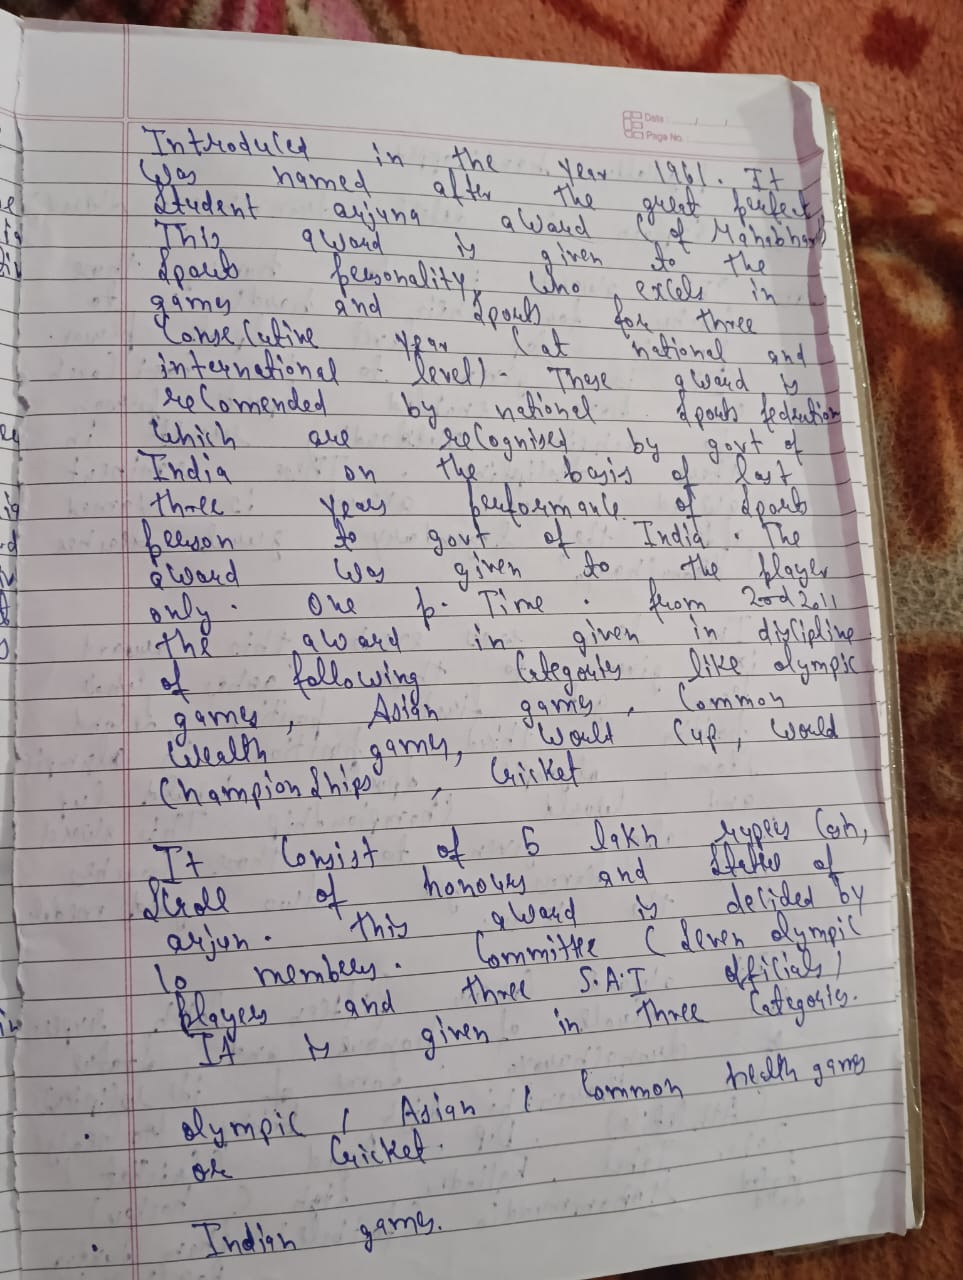 Date
Page No.
Introduced in the year 1961. It
was named after the great perfect
student arjuna award (of Mahabhart)
This award is given to the
sports personality, who excels in
games and sports for three
Consecutive year (at national and
international level). These award is
recomended by national sports fedration
which are recognised by govt of
India on the basis of last
three years performance of sports
person to govt of India. The
award was given to the player
only. One Time. from 2011
the award in given in discipline
of following Categories like olympic
games, Asian games, Common
Wealth games, World Cup, World
Championships, Cricket
It Consist of 5 lakh rupees Cash,
Scroll of honours and Statue of
arjun. This award is decided by
10 members. Committee (seven olympic
players and three S.A.I officials)
It is given in three Categories.
• olympic / Asian / Common health games
or Cricket.
• Indian games.